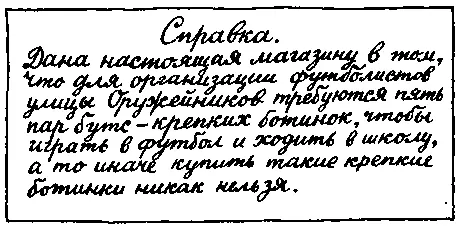 Справка.
Дана настоящая магазину в том,
что для организации футболистов
улицы Оружейников требуются пять
пар бутс – крепких ботинок, чтобы
играть в футбол и ходить в школу,
а то иначе купить такие крепкие
ботинки никак нельзя.